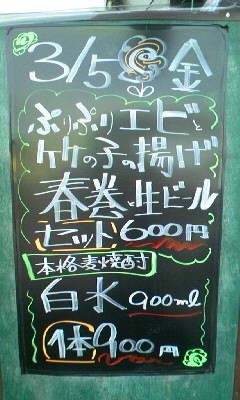 3/5 金
ぷりぷりエビと
竹の子の揚げ
春巻と生ビール
セット600円
本格麦焼酎
白水 900ml
1本900円